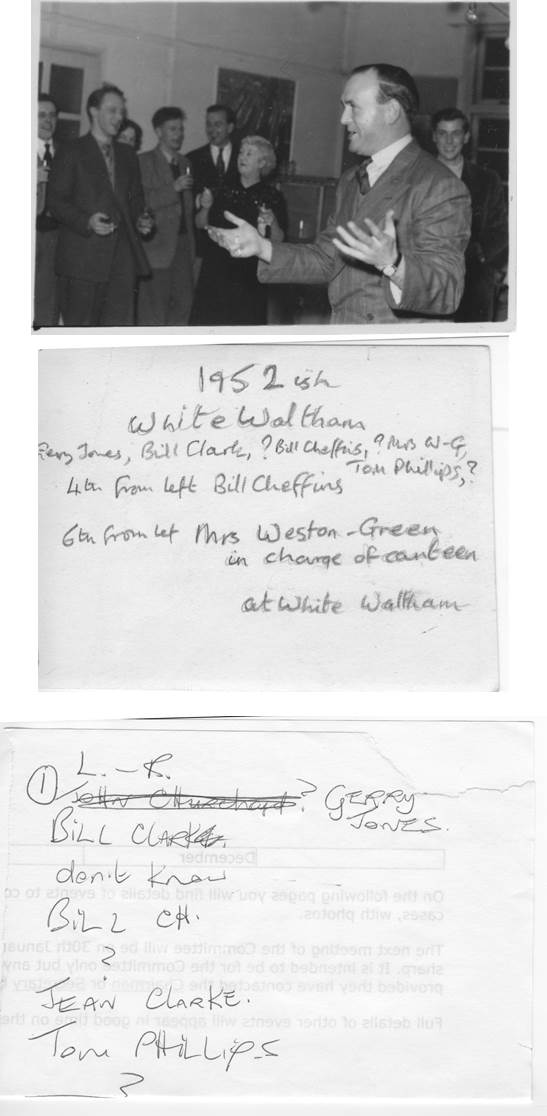 1952 ish
White Waltham
Gerry Jones, Bill Clark, ? Bill Cheffins, ? Mrs W-G,
Tom Phillips, ?
4th from left Bill Cheffins
6th from left Mrs Weston-Green
in charge of canteen
at White Waltham
L. - R.
① John Churchard ? GERRY
JONES.
BILL CLARK
don't know
BILL CH.
?
JEAN CLARKE.
Tom PHILLIPS
?
December
On the following pages you will find details of events to co
cases, with photos.
The next meeting of the Committee will be on 30th Januar
sharp. It is intended to be for the Committee only but any
provided they have contacted the Chairman or Secretary
Full details of other events will appear in good time on the